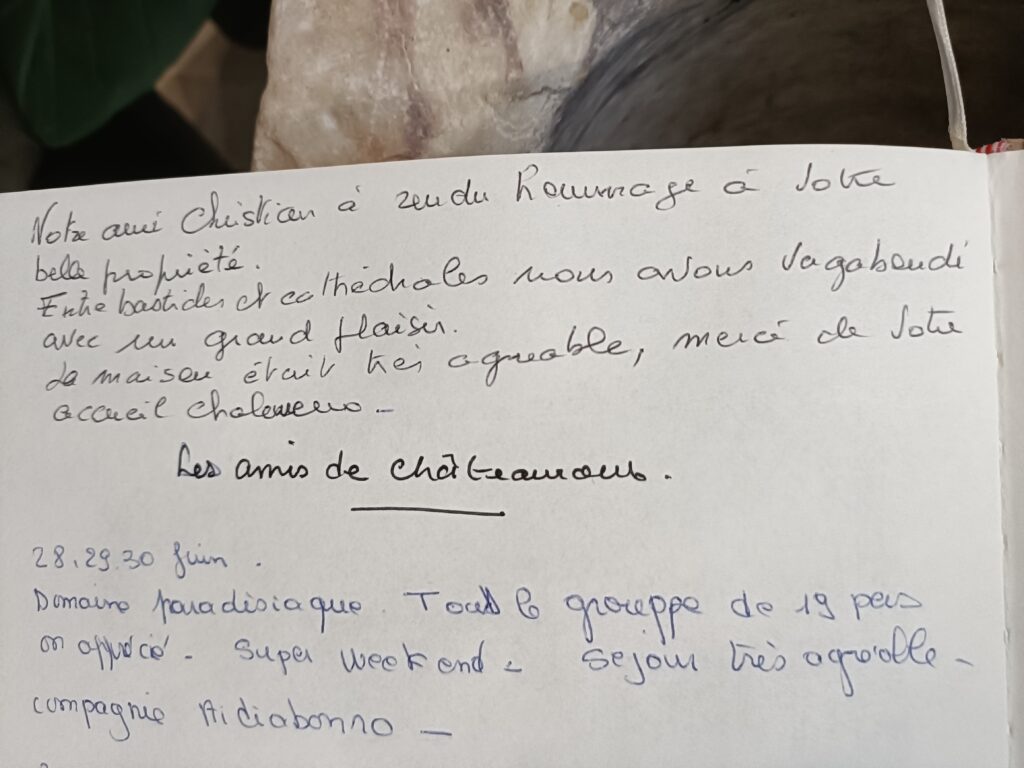 Notre ami Christian à rendu hommage à votre
belle propriété.
Entre bastides et cathédrales nous avons vagabondé
avec un grand plaisir.
La maison était très agréable, merci de votre
accueil chaleureux -
Les amis de châteauroux.
28.29.30 Juin.
Domaine paradisiaque. Tout le grouppe de 19 pers
on apprécié - Super week end - sejour très agréable -
compagnie Aidiabonno -